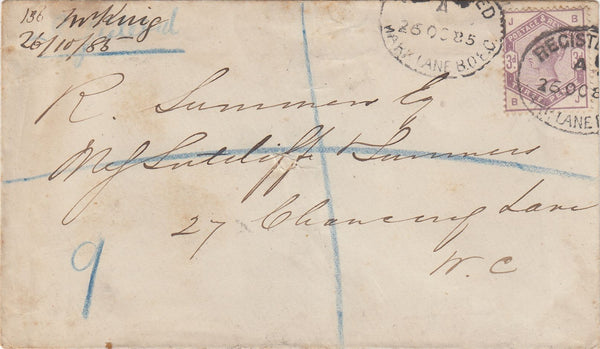 136 McKnig
26/10/85
Registered
REGISTERED
A
26 OC 85
MARK LANE B.O. E.C.
J B
POSTAGE & REVENUE
3d 3d
B J
REGISTE
A
26 OC 8
K LANE B.O
R. Summers Esq
Mess Sutcliff & Summers
27 Chancery Lane
W. C
9